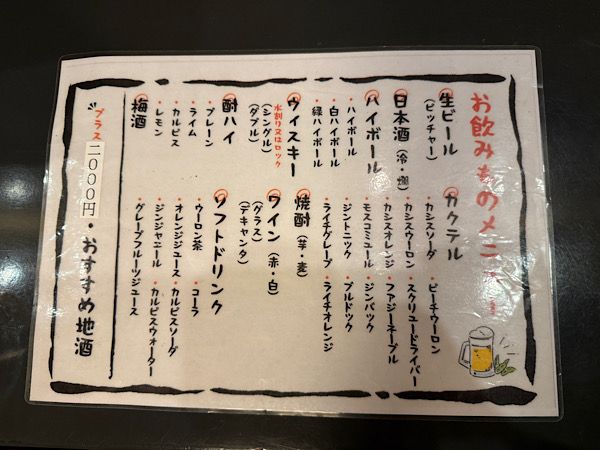 お飲みものメニュー
生ビール
(ピッチャー)
日本酒(冷・燗)
ハイボール
・ハイボール
・白ハイボール
・緑ハイボール
ウィスキー
水割り又はロック
(シングル)
(ダブル)
酎ハイ
・プレーン
・ライム
・カルピス
・レモン
梅酒
カクテル
・カシスソーダ
・ピーチウーロン
・カシスウーロン
・スクリュードライバー
・カシスオレンジ
・ファジーネーブル
・モスコミュール
・ジンバック
・ジントニック
・ブルドック
・ライチグレープ
・ライチオレンジ
焼酎(芋・麦)
ワイン(赤・白)
(グラス)
(デキャンタ)
ソフトドリンク
・ウーロン茶
・コーラ
・オレンジジュース
・カルピスソーダ
・ジンジャエール
・カルピスウォーター
・グレープフルーツジュース
プラス二〇〇〇円・おすすめ地酒